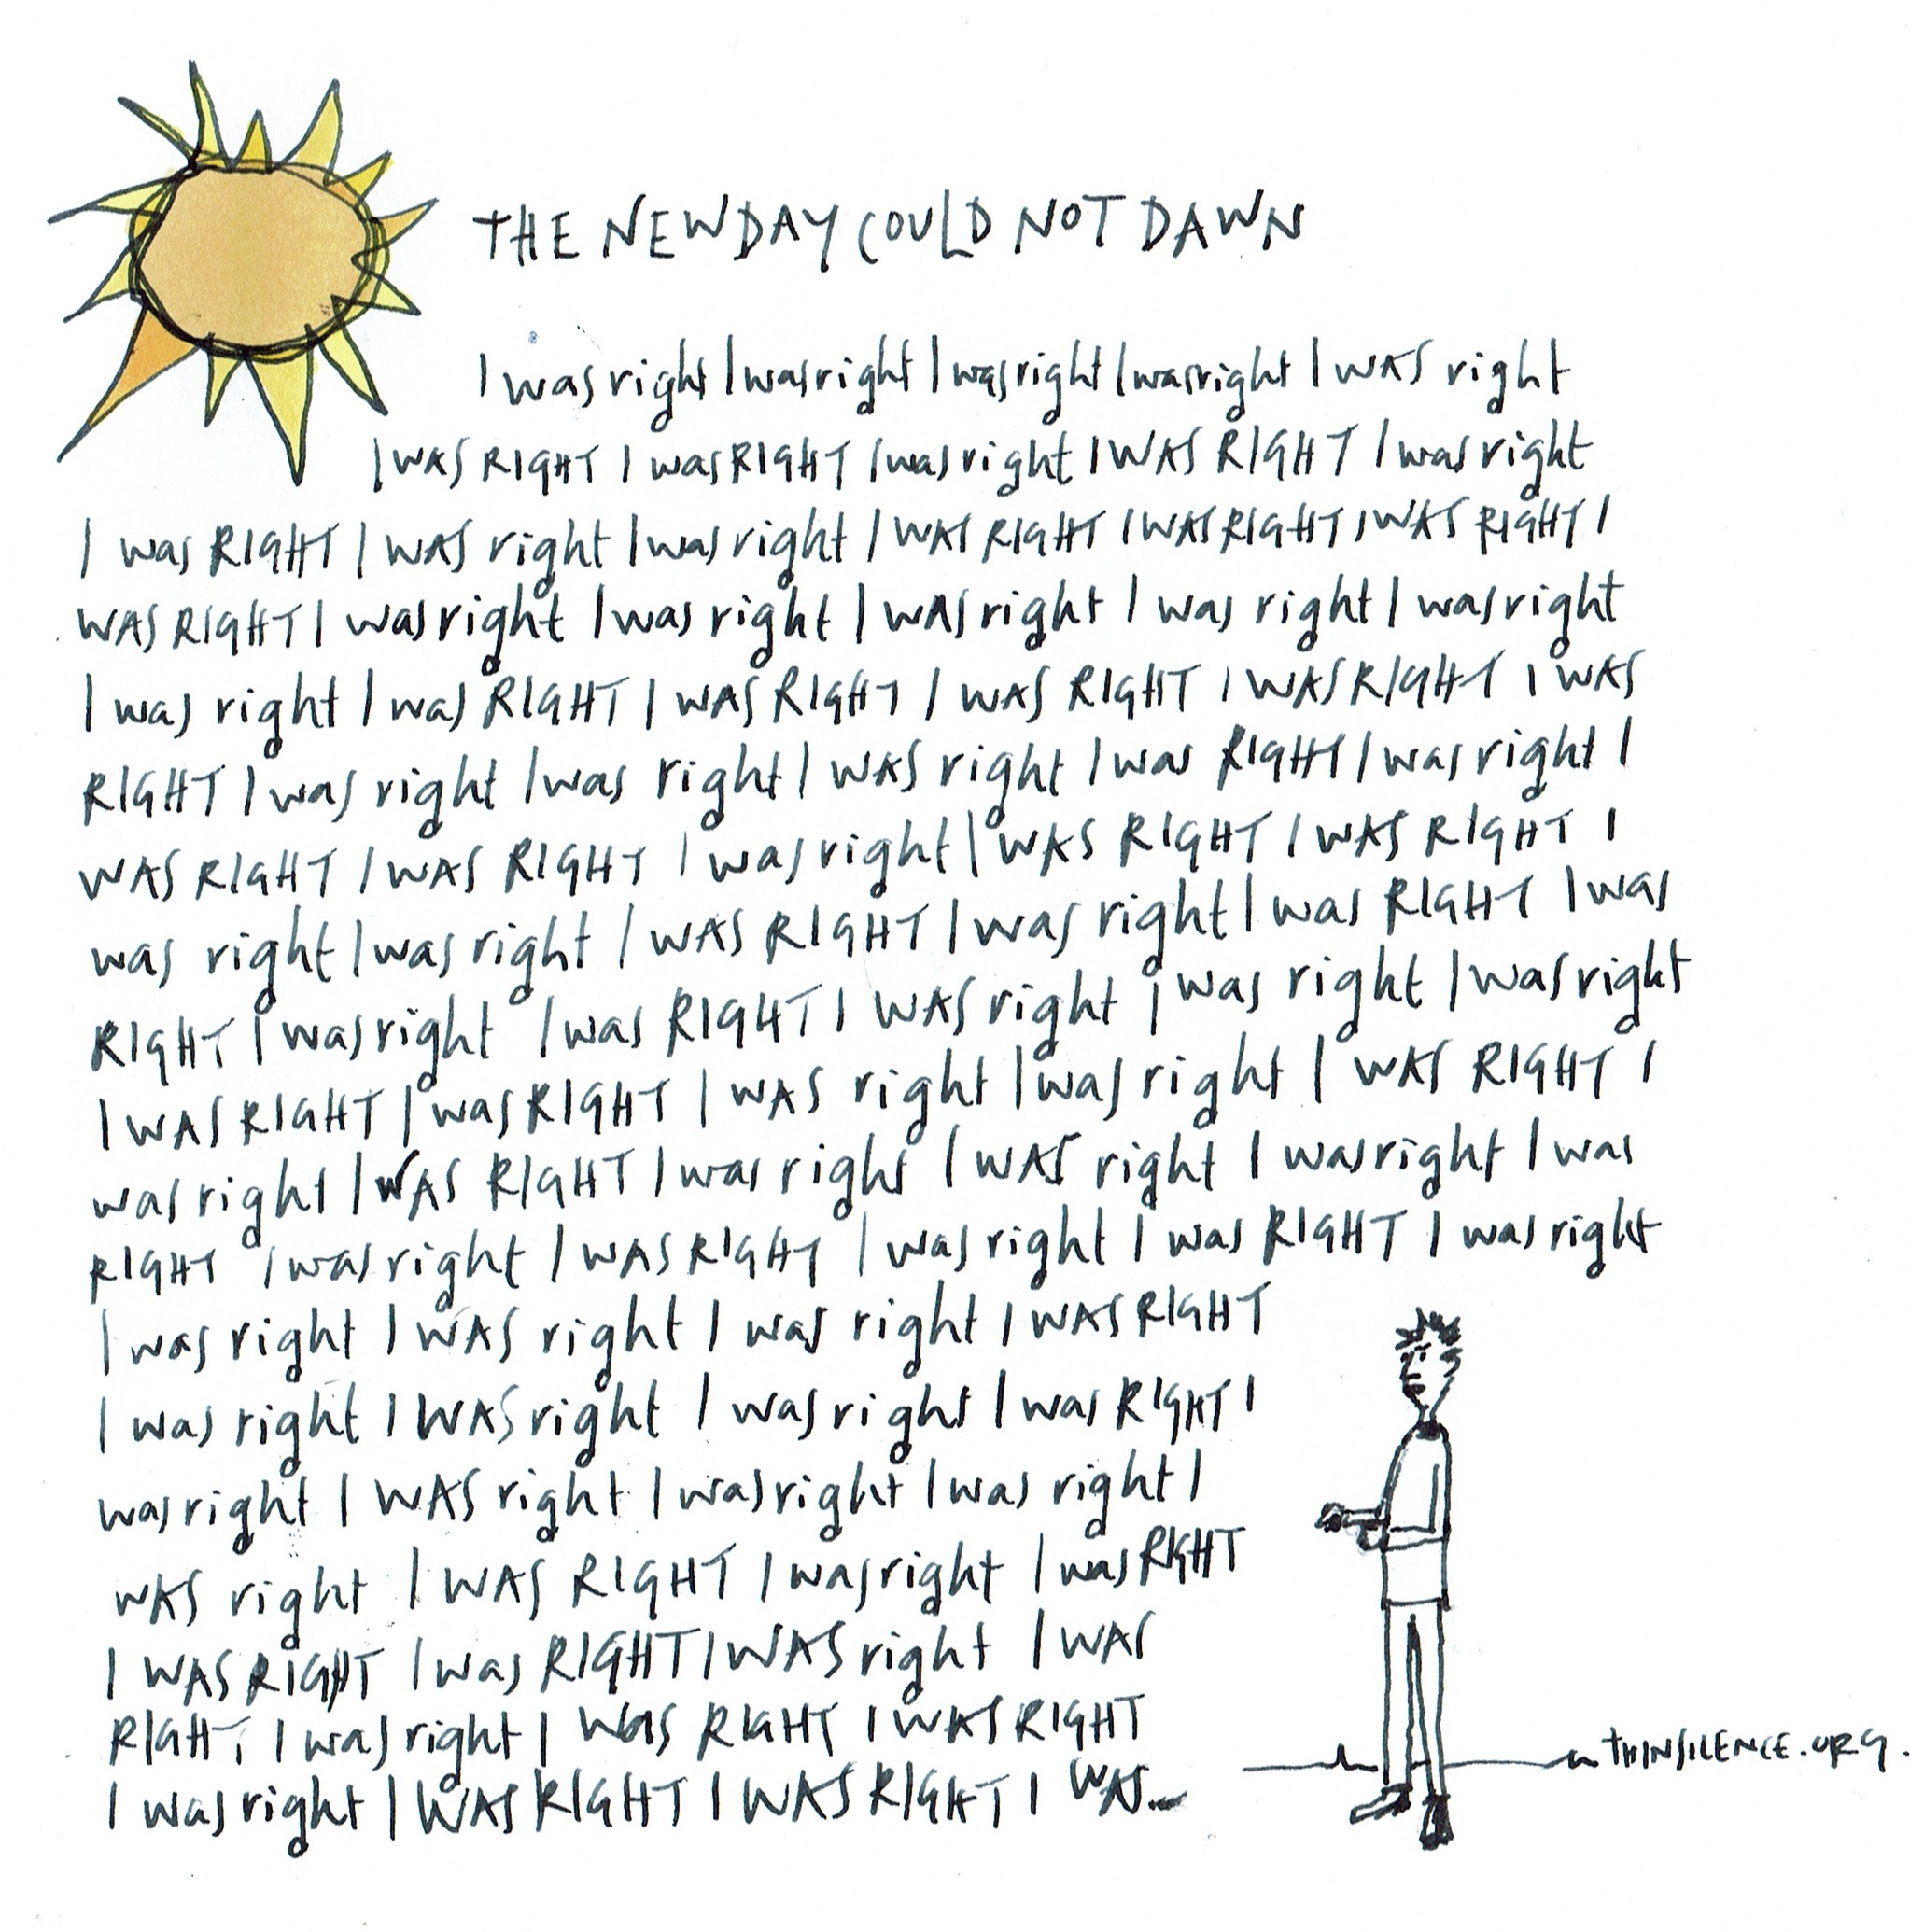 THE NEW DAY COULD NOT DAWN
I was right I was right I was right I was right I WAS right
I WAS RIGHT I was RIGHT I was right I WAS RIGHT I was right
I was RIGHT I WAS right I was right I WAS RIGHT I WAS RIGHT I WAS RIGHT I
WAS RIGHT I was right I was right I WAS right I was right I was right
I was right I was RIGHT I WAS RIGHT I WAS RIGHT I WAS RIGHT I WAS
RIGHT I was right I was right I WAS right I was RIGHT I was right I
WAS RIGHT I WAS RIGHT I was right I WAS RIGHT I WAS RIGHT I
was right I was right I WAS RIGHT I was right I was RIGHT I was
RIGHT I was right I was RIGHT I WAS right I was right I was right
I WAS RIGHT I was RIGHT I WAS right I was right I WAS RIGHT I
was right I WAS RIGHT I was right I WAS right I was right I was
RIGHT I was right I WAS RIGHT I was right I was RIGHT I was right
I was right I WAS right I was right I WAS RIGHT
I was right I WAS right I was right I was RIGHT I
was right I WAS right I was right I was right I
WAS right I WAS RIGHT I was right I was RIGHT
I WAS RIGHT I was RIGHT I WAS right I WAS
RIGHT I was right I was RIGHT I WAS RIGHT
I was right I WAS RIGHT I WAS RIGHT I WAS...
THINSILENCE.ORG.